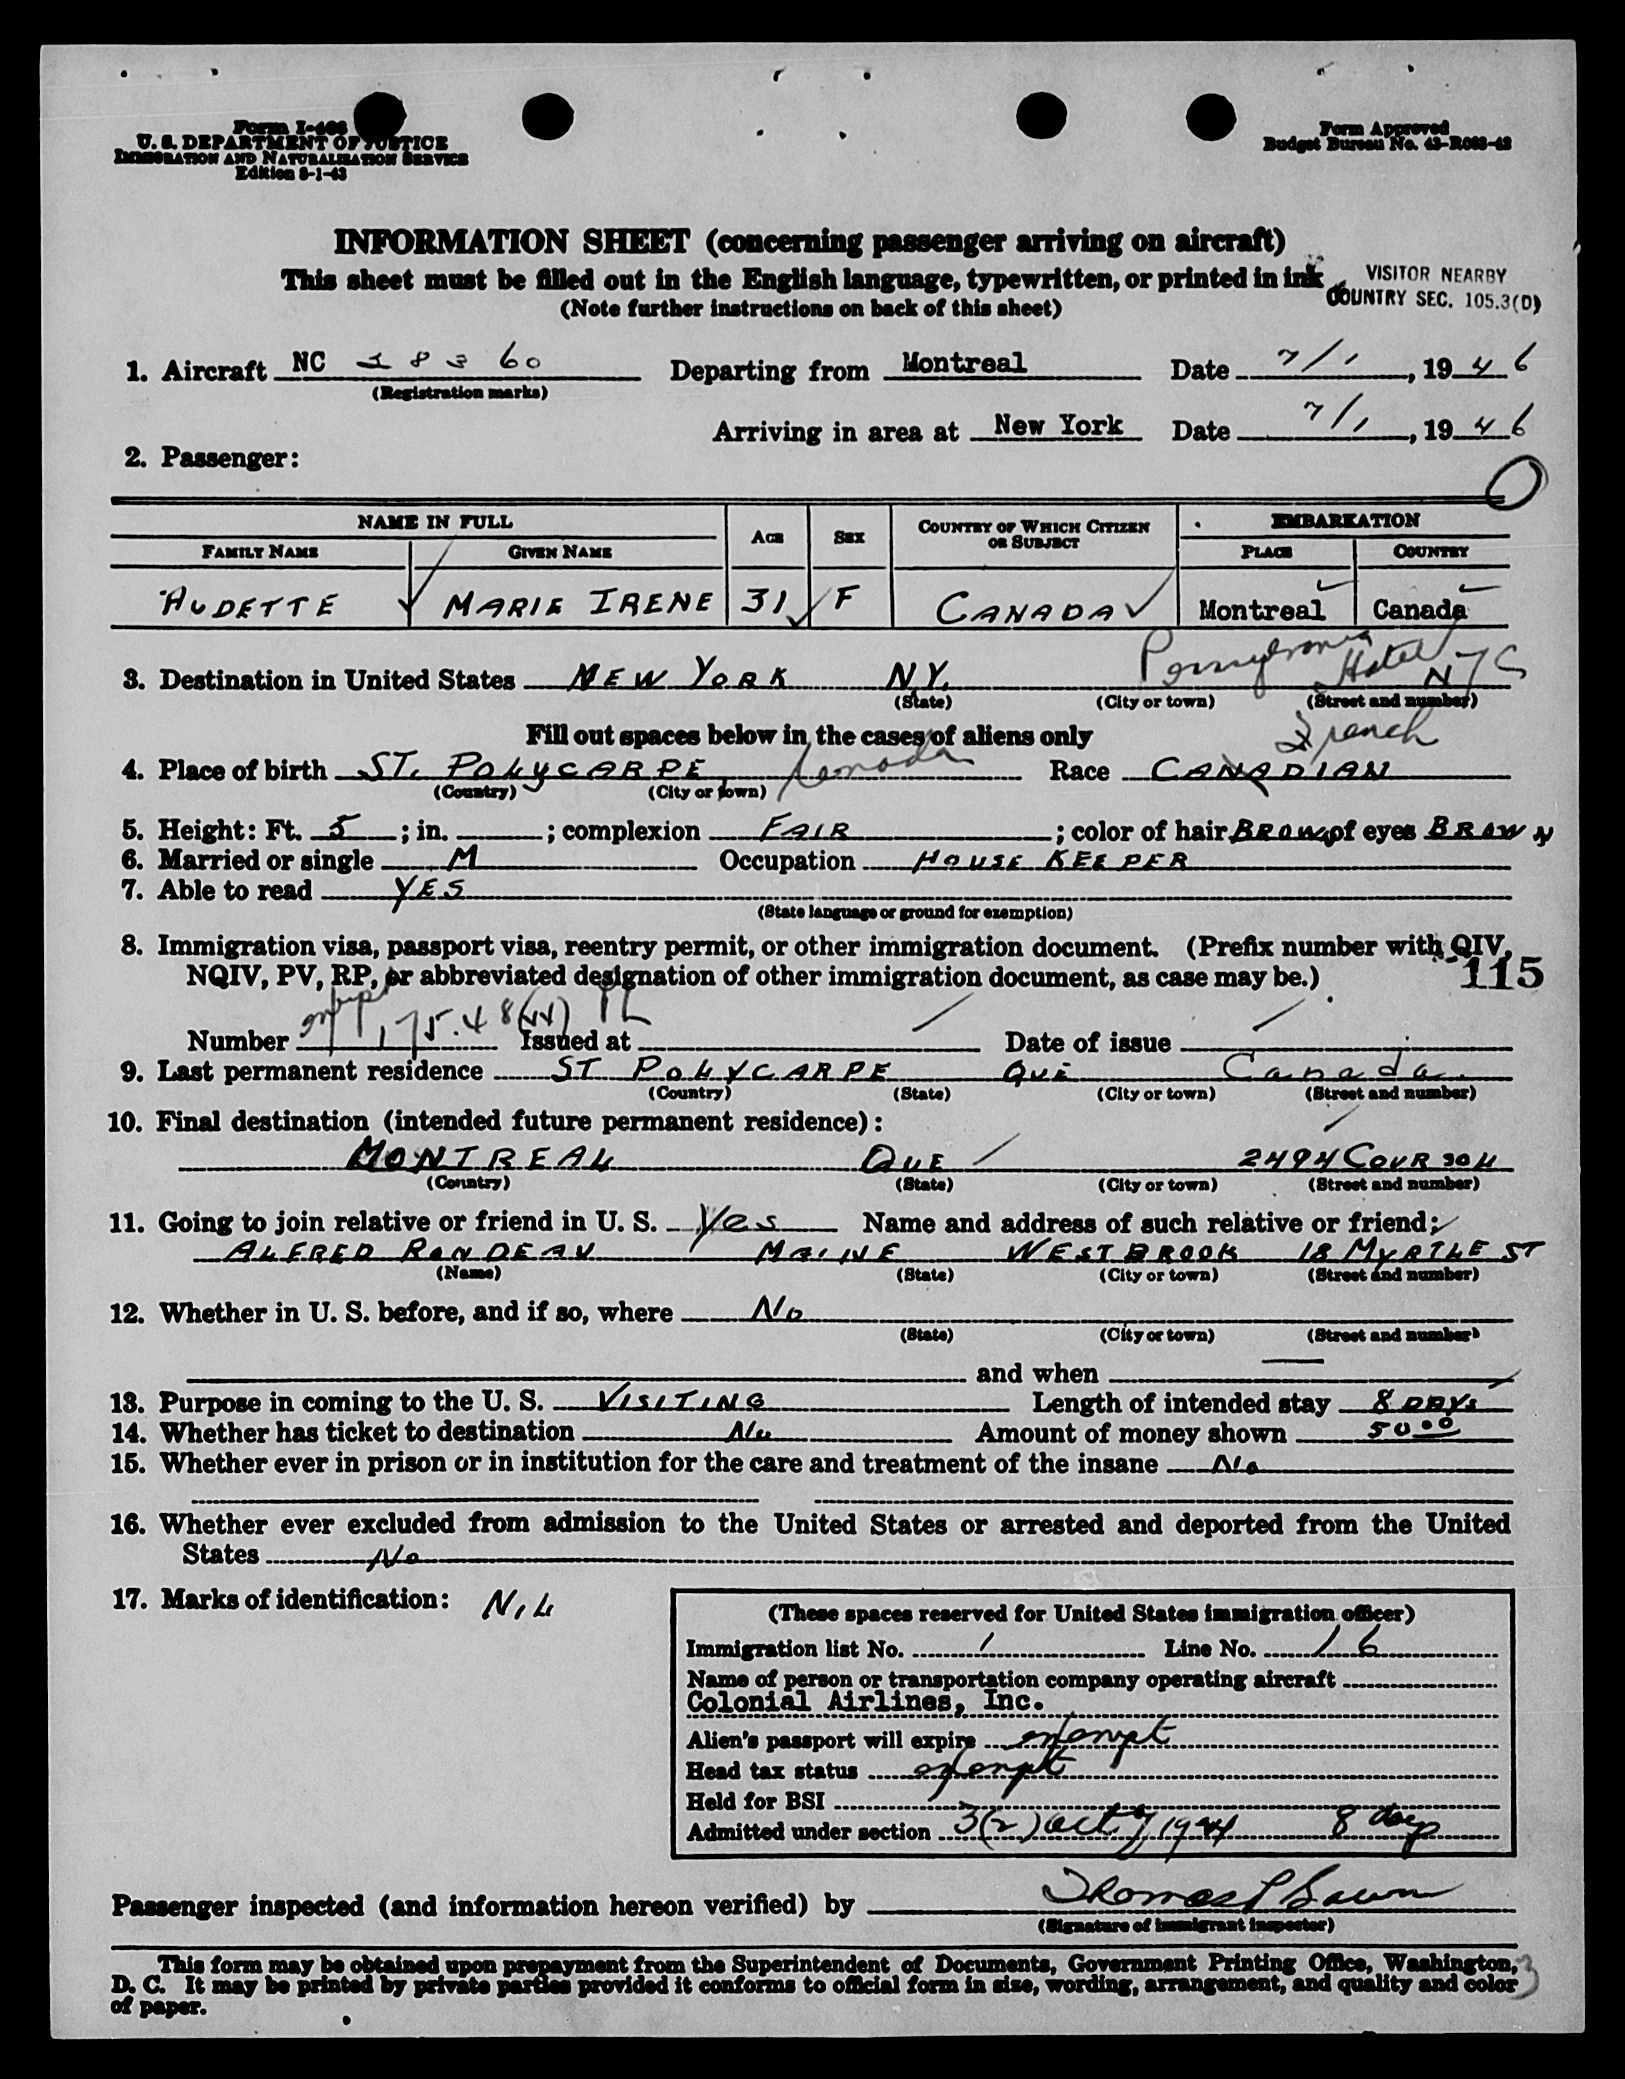 Form I-466
U. S. DEPARTMENT OF JUSTICE
IMMIGRATION AND NATURALIZATION SERVICE
Edition 8-1-43
Form Approved
Budget Bureau No. 43-R063-42
INFORMATION SHEET (concerning passenger arriving on aircraft)
This sheet must be filled out in the English language, typewritten, or printed in ink
(Note further instructions on back of this sheet)
VISITOR NEARBY
COUNTRY SEC. 105.3(D)
1. Aircraft NC 18360 Departing from Montreal Date 7/1, 1946
(Registration marks)
Arriving in area at New York Date 7/1, 1946
2. Passenger:
NAME IN FULL AGE SEX COUNTRY OF WHICH CITIZEN OR SUBJECT EMBARKATION
FAMILY NAME GIVEN NAME PLACE COUNTRY
AUDETTE MARIE IRENE 31 F CANADA Montreal Canada
Pennsylvania Hotel
3. Destination in United States NEW YORK N.Y. NYC
(State) (City or town) (Street and number)
Fill out spaces below in the cases of aliens only
French
4. Place of birth ST. POLYCARPE, Canada Race CANADIAN
(Country) (City or town)
5. Height: Ft. 5; in. ; complexion FAIR; color of hair BROWN of eyes BROWN
6. Married or single M Occupation HOUSE KEEPER
7. Able to read YES
(State language or ground for exemption)
8. Immigration visa, passport visa, reentry permit, or other immigration document. (Prefix number with QIV,
NQIV, PV, RP, or abbreviated designation of other immigration document, as case may be.)
115
Number 175.48 Issued at Date of issue
9. Last permanent residence ST POLYCARPE QUE Canada
(Country) (State) (City or town) (Street and number)
10. Final destination (intended future permanent residence):
MONTREAL QUE 2494 COURSOL
(Country) (State) (City or town) (Street and number)
11. Going to join relative or friend in U. S. Yes Name and address of such relative or friend:
ALFRED RONDEAU MAINE WESTBROOK 18 MYRTLE ST
(Name) (State) (City or town) (Street and number)
12. Whether in U. S. before, and if so, where No
(State) (City or town) (Street and number)
and when
13. Purpose in coming to the U. S. VISITING Length of intended stay 8 DAYS
14. Whether has ticket to destination No Amount of money shown 50.00
15. Whether ever in prison or in institution for the care and treatment of the insane No
16. Whether ever excluded from admission to the United States or arrested and deported from the United
States No
17. Marks of identification: NIL
(These spaces reserved for United States immigration officer)
Immigration list No. 1 Line No. 16
Name of person or transportation company operating aircraft
Colonial Airlines, Inc.
Alien's passport will expire exempt
Head tax status exempt
Held for BSI
Admitted under section 3(2) act of 1924 8 days
Passenger inspected (and information hereon verified) by Thomas
(Signature of immigrant inspector)
This form may be obtained upon prepayment from the Superintendent of Documents, Government Printing Office, Washington,
D. C. It may be printed by private parties provided it conforms to official form in size, wording, arrangement, and quality and color
of paper.